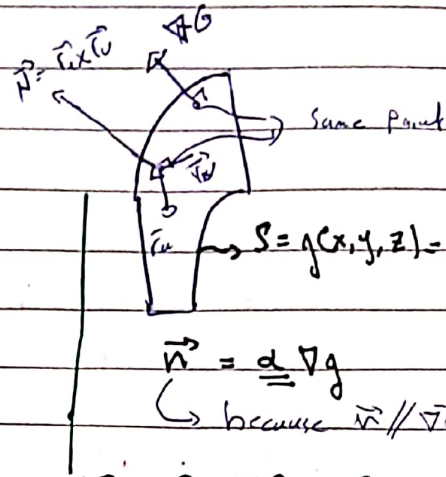 ∇G
N⃗ = r⃗u × r⃗v
Same Point
r⃗v
r⃗u
S = g(x, y, z) =
n⃗ = α ∇g
because n⃗ // ∇